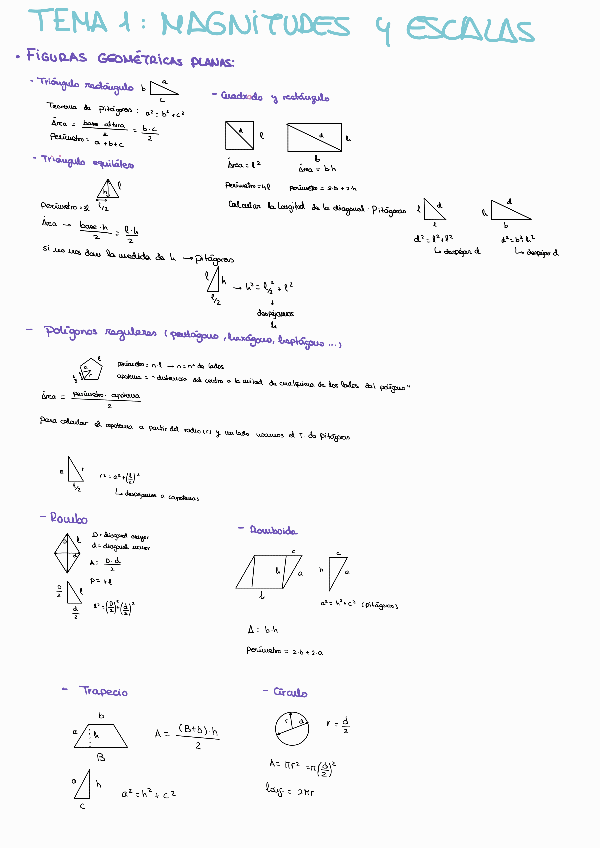 TEMA 1: MAGNITUDES y ESCALAS
• FIGURAS GEOMÉTRICAS PLANAS:
- Triángulo rectángulo
b a c
Teorema de Pitágoras: a² = b² + c²
Área = base · altura / 2 = b · c / 2
Perímetro = a + b + c
- Cuadrado y rectángulo
d l
d h b
Área = l²
Área = b·h
Perímetro = 4l
Perímetro = 2·b + 2·h
Calcular la longitud de la diagonal · Pitágoras
l d l
h d b
d² = l² + l²
↳ despejar d
d² = b² + h²
↳ despejar d
- Triángulo equilátero
h l l/2
Perímetro = 3l
Área → base · h / 2 = l · h / 2
si no nos dan la medida de h → pitágoras
l h l/2
→ h² = l/2² + l²
↓
despejamos
h
- Polígonos regulares (pentágono, hexágono, heptágono ...)
perímetro = n·l → n = nº de lados
apotema = "distancia del centro a la mitad de cualquiera de los lados del polígono"
Área = perímetro · apotema / 2
para calcular el apotema a partir del radio (r) y un lado usamos el T de pitágoras
a r l/2
r² = a² + (l/2)²
↳ despejamos a
- Rombo
D = diagonal mayor
d = diagonal menor
A = D · d / 2
P = 4l
D/2 l d/2
l² = (D/2)² + (d/2)²
- Romboide
c h a b
c h a
a² = h² + c² (pitágoras)
A = b·h
Perímetro = 2·b + 2·a
- Trapecio
b a h B
A = (B+b)·h / 2
a h c
a² = h² + c²
- Círculo
r d
r = d/2
A = πr² = π(d/2)²
long = 2πr